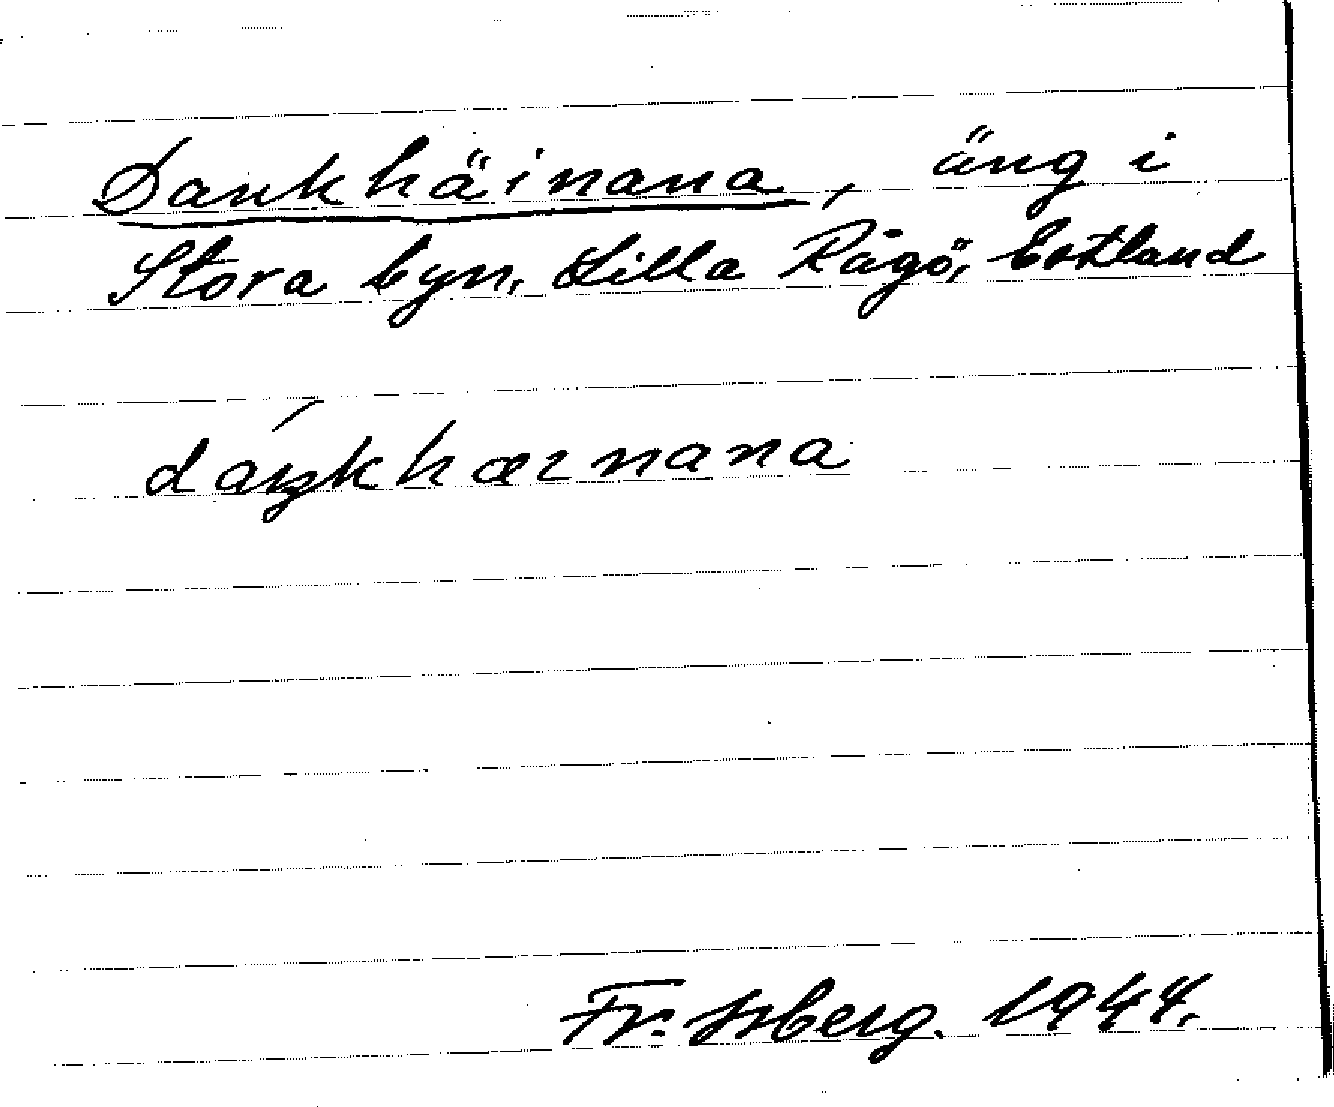 Dankhäinana, äng i
Stora byn, Lilla Rågö, Estland
dáŋkhæɩnana
Fr. Isberg. 1944.